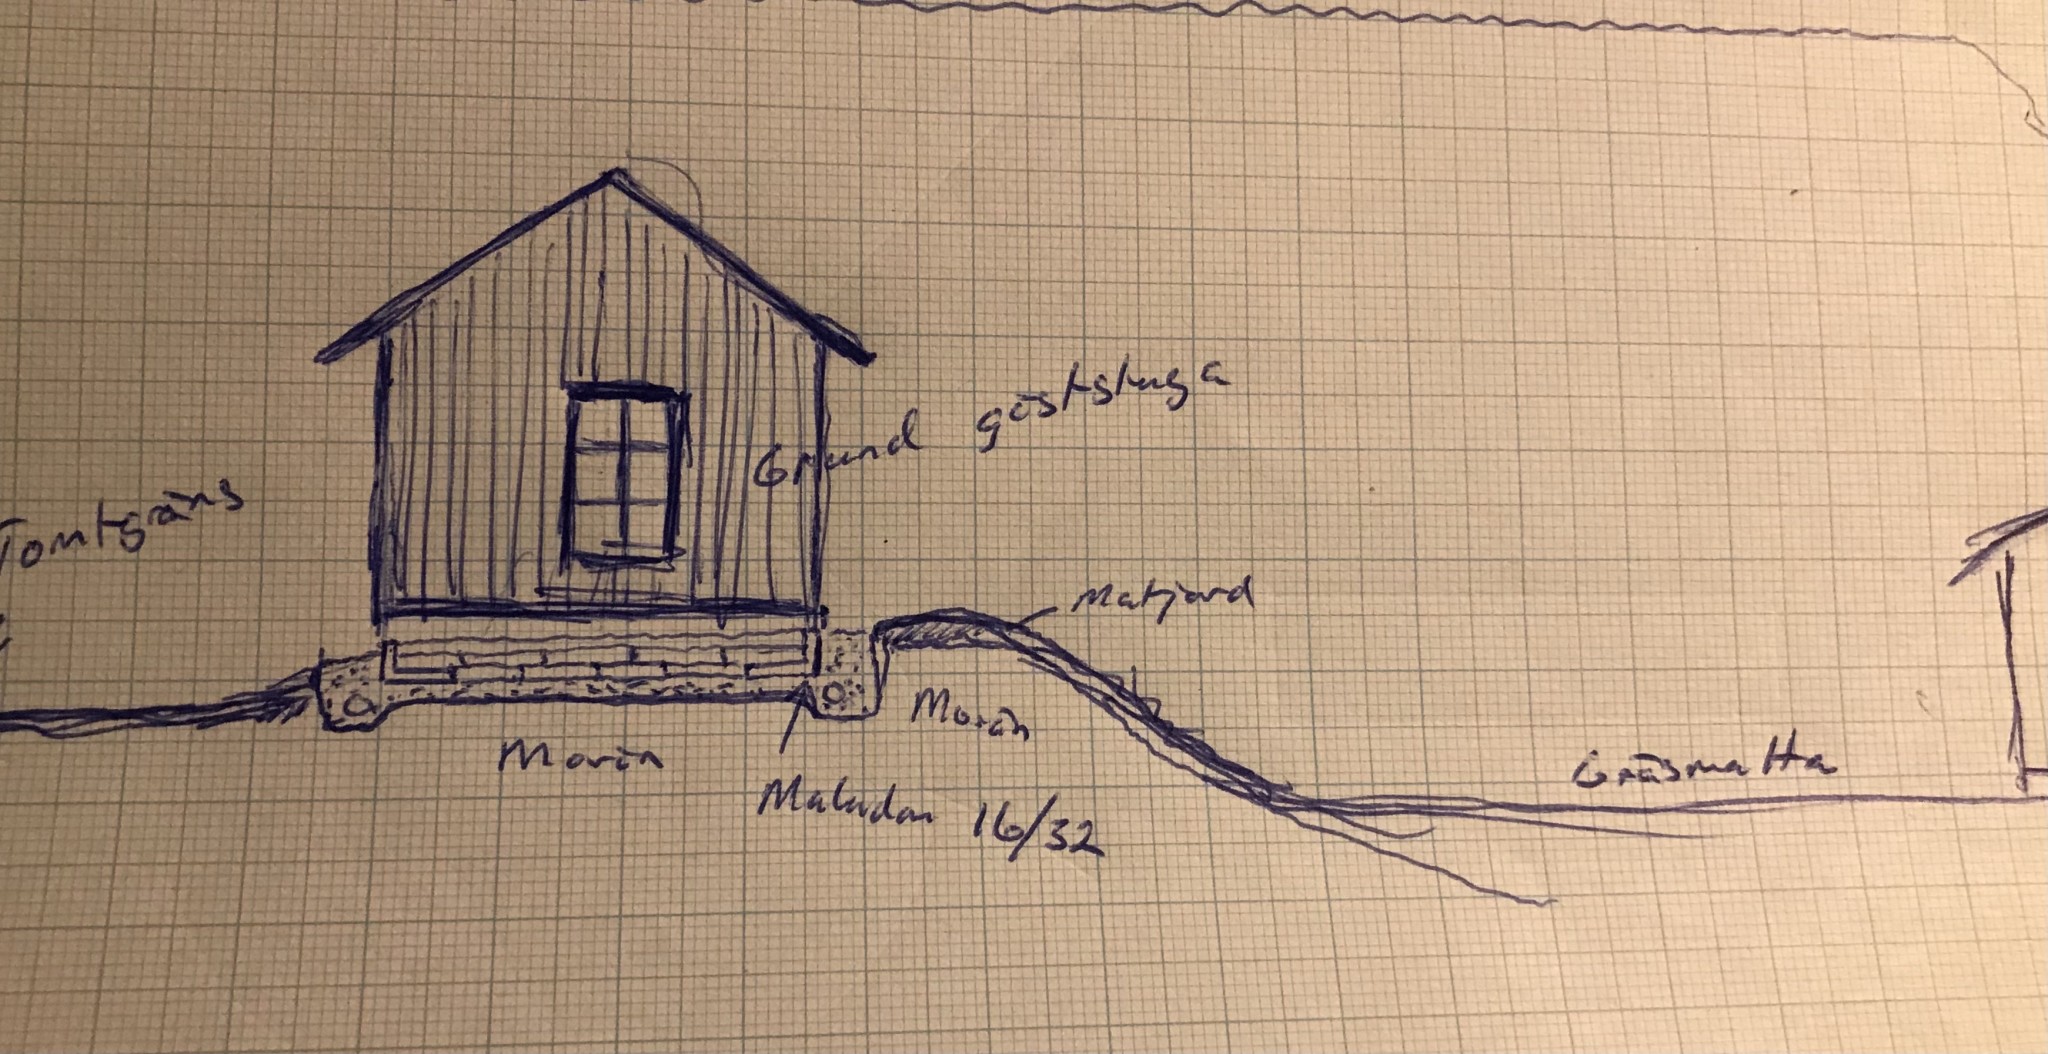 Grund gäststuga
Tomtgräns
Matjord
Morän
Morän
Makadam 16/32
Gräsmatta